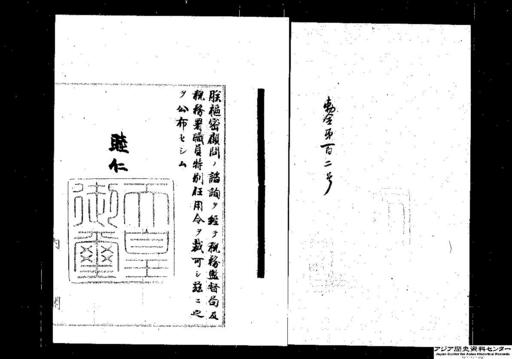 勅令第百二号
朕樞密顧問ノ諮詢ヲ経テ税務監督局及
税務署職員特別任用令ヲ裁可シ茲ニ之
ヲ公布セシム
睦仁
天皇
御璽
アジア歴史資料センター
Japan Center for Asian Historical Records